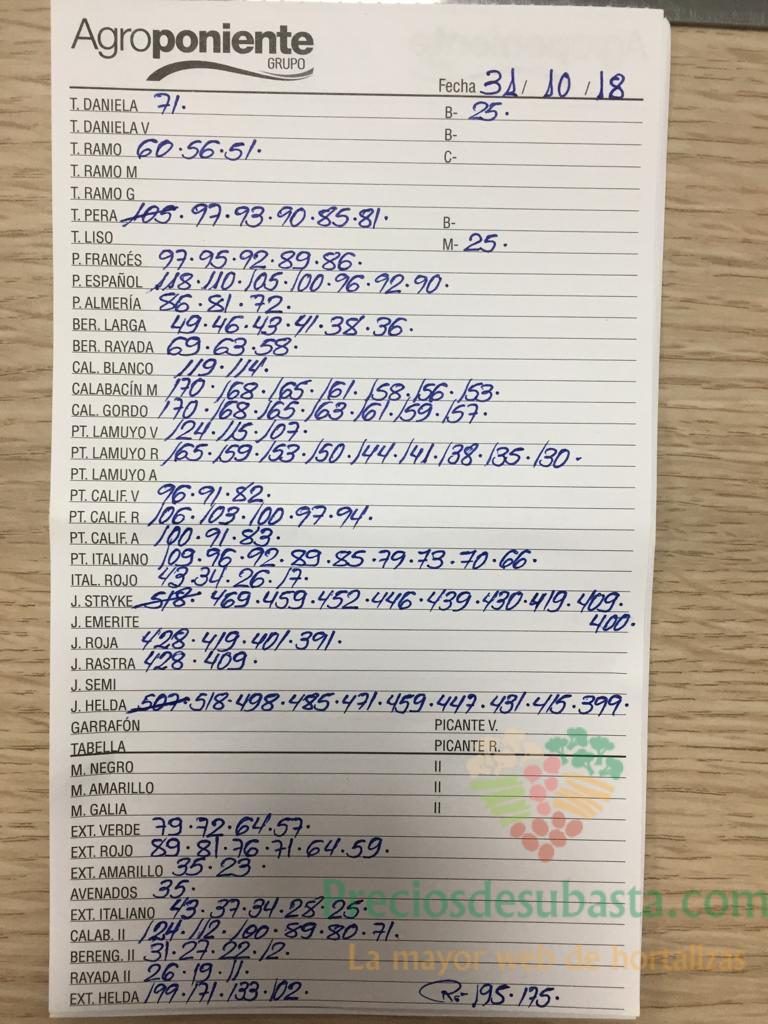 Agroponiente
GRUPO
Fecha 31 / 10 / 18
T. DANIELA 71. B- 25.
T. DANIELA V B-
T. RAMO 60.56.51. C-
T. RAMO M
T. RAMO G
T. PERA 105.97.93.90.85.81. B-
T. LISO M- 25.
P. FRANCÉS 97.95.92.89.86.
P. ESPAÑOL 118.110.105.100.96.92.90.
P. ALMERÍA 86.81.72.
BER. LARGA 49.46.43.41.38.36.
BER. RAYADA 69.63.58.
CAL. BLANCO 119.114.
CALABACÍN M 170.168.165.161.158.156.153.
CAL. GORDO 170.168.165.163.161.159.157.
PT. LAMUYO V 124.115.107.
PT. LAMUYO R 165.159.153.150.144.141.138.135.130.
PT. LAMUYO A
PT. CALIF. V 96.91.82.
PT. CALIF. R 106.103.100.97.94.
PT. CALIF. A 100.91.83.
PT. ITALIANO 109.96.92.89.85.79.73.70.66.
ITAL. ROJO 43.34.26.17.
J. STRYKE 518. 469.459.452.446.439.430.419.409.
J. EMERITE 400.
J. ROJA 428.419.401.391.
J. RASTRA 428.409.
J. SEMI
J. HELDA 507.518.498.485.471.459.447.431.415.399.
GARRAFÓN PICANTE V.
TABELLA PICANTE R.
M. NEGRO II
M. AMARILLO II
M. GALIA II
EXT. VERDE 79.72.64.57.
EXT. ROJO 89.81.76.71.64.59.
EXT. AMARILLO 35.23.
AVENADOS 35.
EXT. ITALIANO 43.37.34.28.25.
CALAB. II 124.112.100.89.80.71.
BERENG. II 31.27.22.12.
RAYADA II 26.19.11.
EXT. HELDA 199.171.133.102. R:- 195.175.
Preciosdesubasta.com
La mayor web de hortalizas